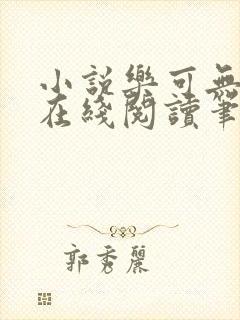 小説樂可無
在綫閱讀筆
郭秀麗